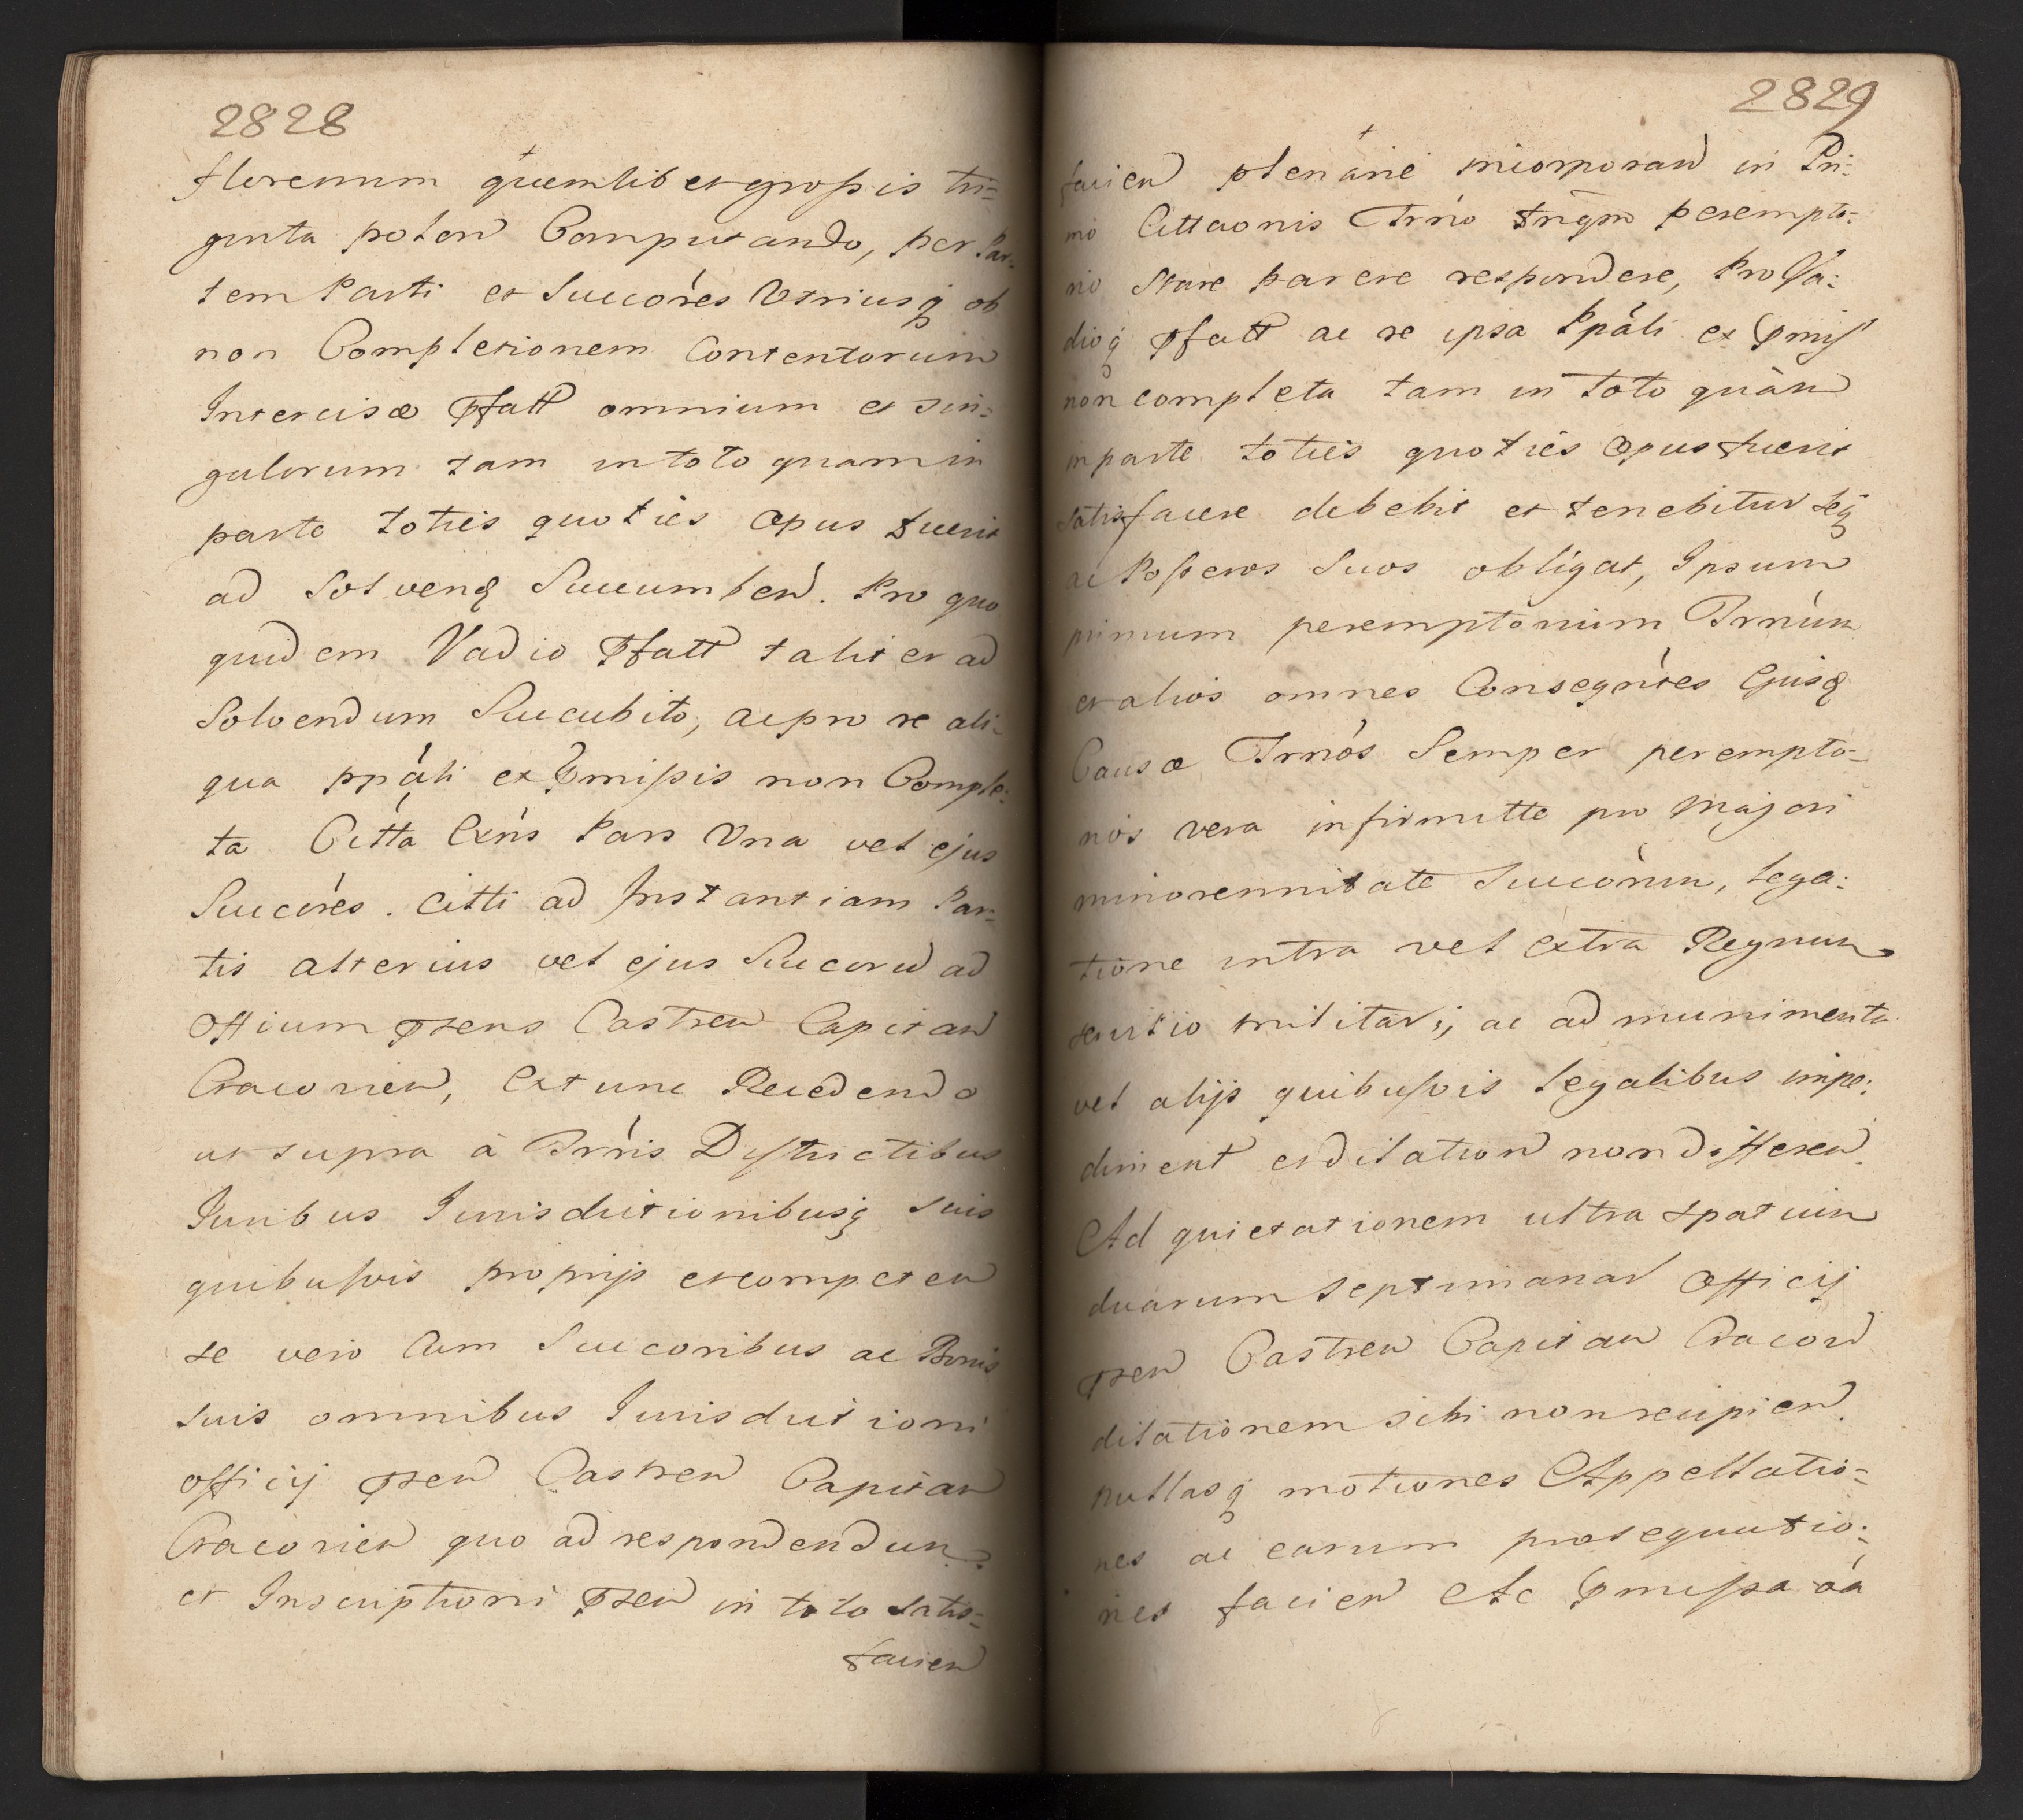 2828
florenum quemlibet grossis tri=
ginta polon Computando, per Par=
tem Parti et Succóres Utriusq ob
non Completionem Contentorum
Intercisæ pfatt omnium et sin=
gulorum tam in toto quam in
parte toties quoties opus fuerit
ad Solvenđ Succumben. Pro quo
quidem Vadio pfatt taliter ad
Solvendum Succubito, ac pro re ali=
qua ppáli ex pmissis non Comple:
ta Citta Cxns Pars Una vel ejus
Succóres. Citti ad Instantiam Par=
tis alterius vel ejus Succorum ad
Officium psens Castren Capitan
Cracovien, Ex tunc Recedendo
ut supra à Terris Districtibus
Juribus Jurisdictionibusq suis
quibusvis proprijs et competen
se vero Cum Succoribus ac Bonis
suis omnibus Jurisdictioni
Officij psen Castren Capitan
Cracovien quo ad respondendum
et Inscriptioni psen in toto satis=
facien
2829
facien plenarie incorporan in Pri:
mo Cittaonis Trno tnqm perempto=
rio Stare parere respondere, Pro Va:
dioq pfatt ac re ipsa ppáli ex pmis
non completa tam in toto quàm
in parte toties quoties opus fuerit
satisfacere debebit et tenebitur seq
ac Posteros Suos obligat, Ipsum
primum peremptorium Trnum
et alios omnes Conseqntes Ejusđ
Causæ Trnos Semper perempto=
rios vera infirmitte pro majori
minorennitate Succórum, lega:
tione intra vel extra Regnum
servitio militari, ac ad munimenta
vel alijs quibusvis legalibus impe:
diment et dilation non differen.
Ad quietationem ultra spatium
duarum septimanar Officij
psen Castren Capitan Cracovien
dilationem sibi non recipien.
nullasq motiones Appellatio=
nes ac earum prosequutio:
nes facien Ac pmissa oa